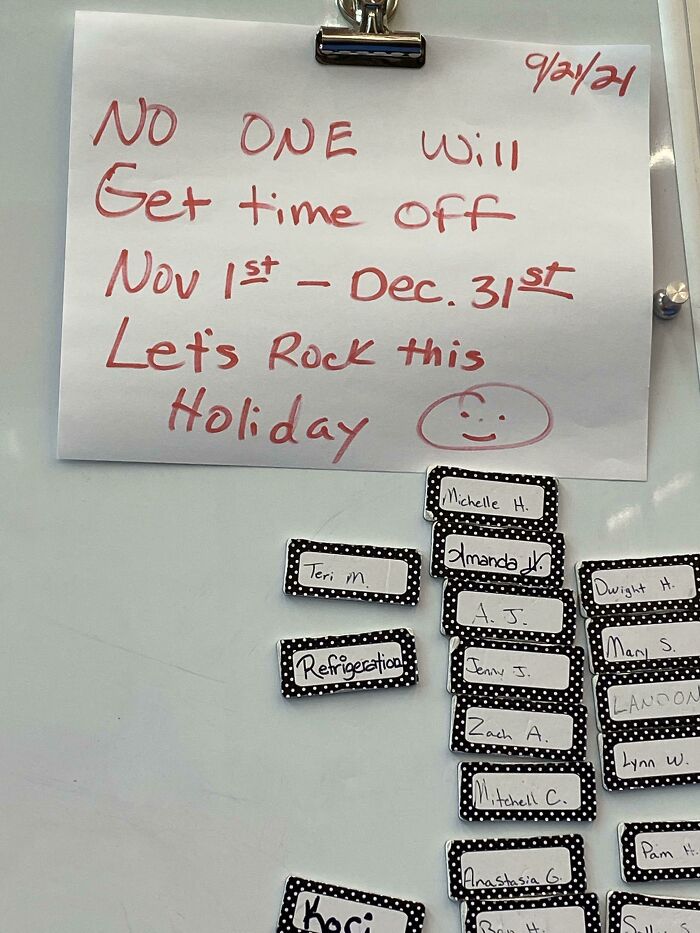 9/21/21
NO ONE Will
Get time off
Nov 1st – Dec. 31st
Let's Rock this
Holiday
Michelle H.
Amanda W.
Teri M.
Dwight H.
A. J.
Mary S.
Refrigeration
Jenny J.
LANDON
Zach A.
Lynn W.
Mitchell C.
Pam H.
Anastasia G.
Kori
Ben H.
Sally S.